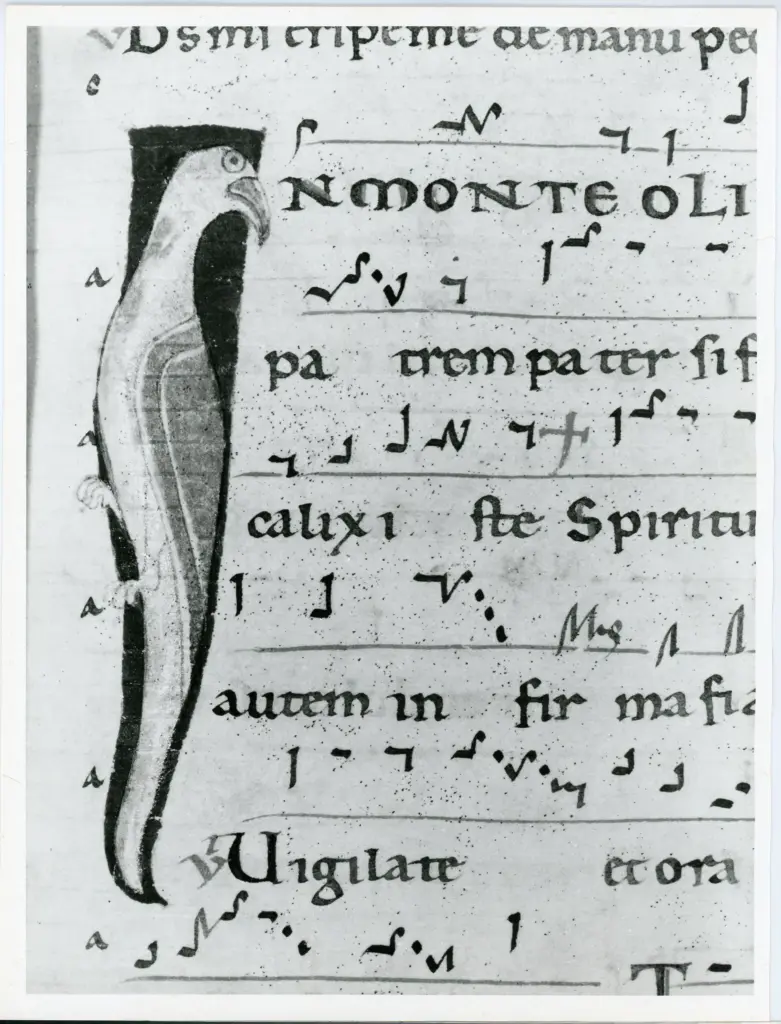 DS mi eripe me de manu pec
c
N MONTE OLI
a
pa trem pater si f
a
calix i ste Spiritu
a
autem in fir ma
a
Vigilate et ora
a